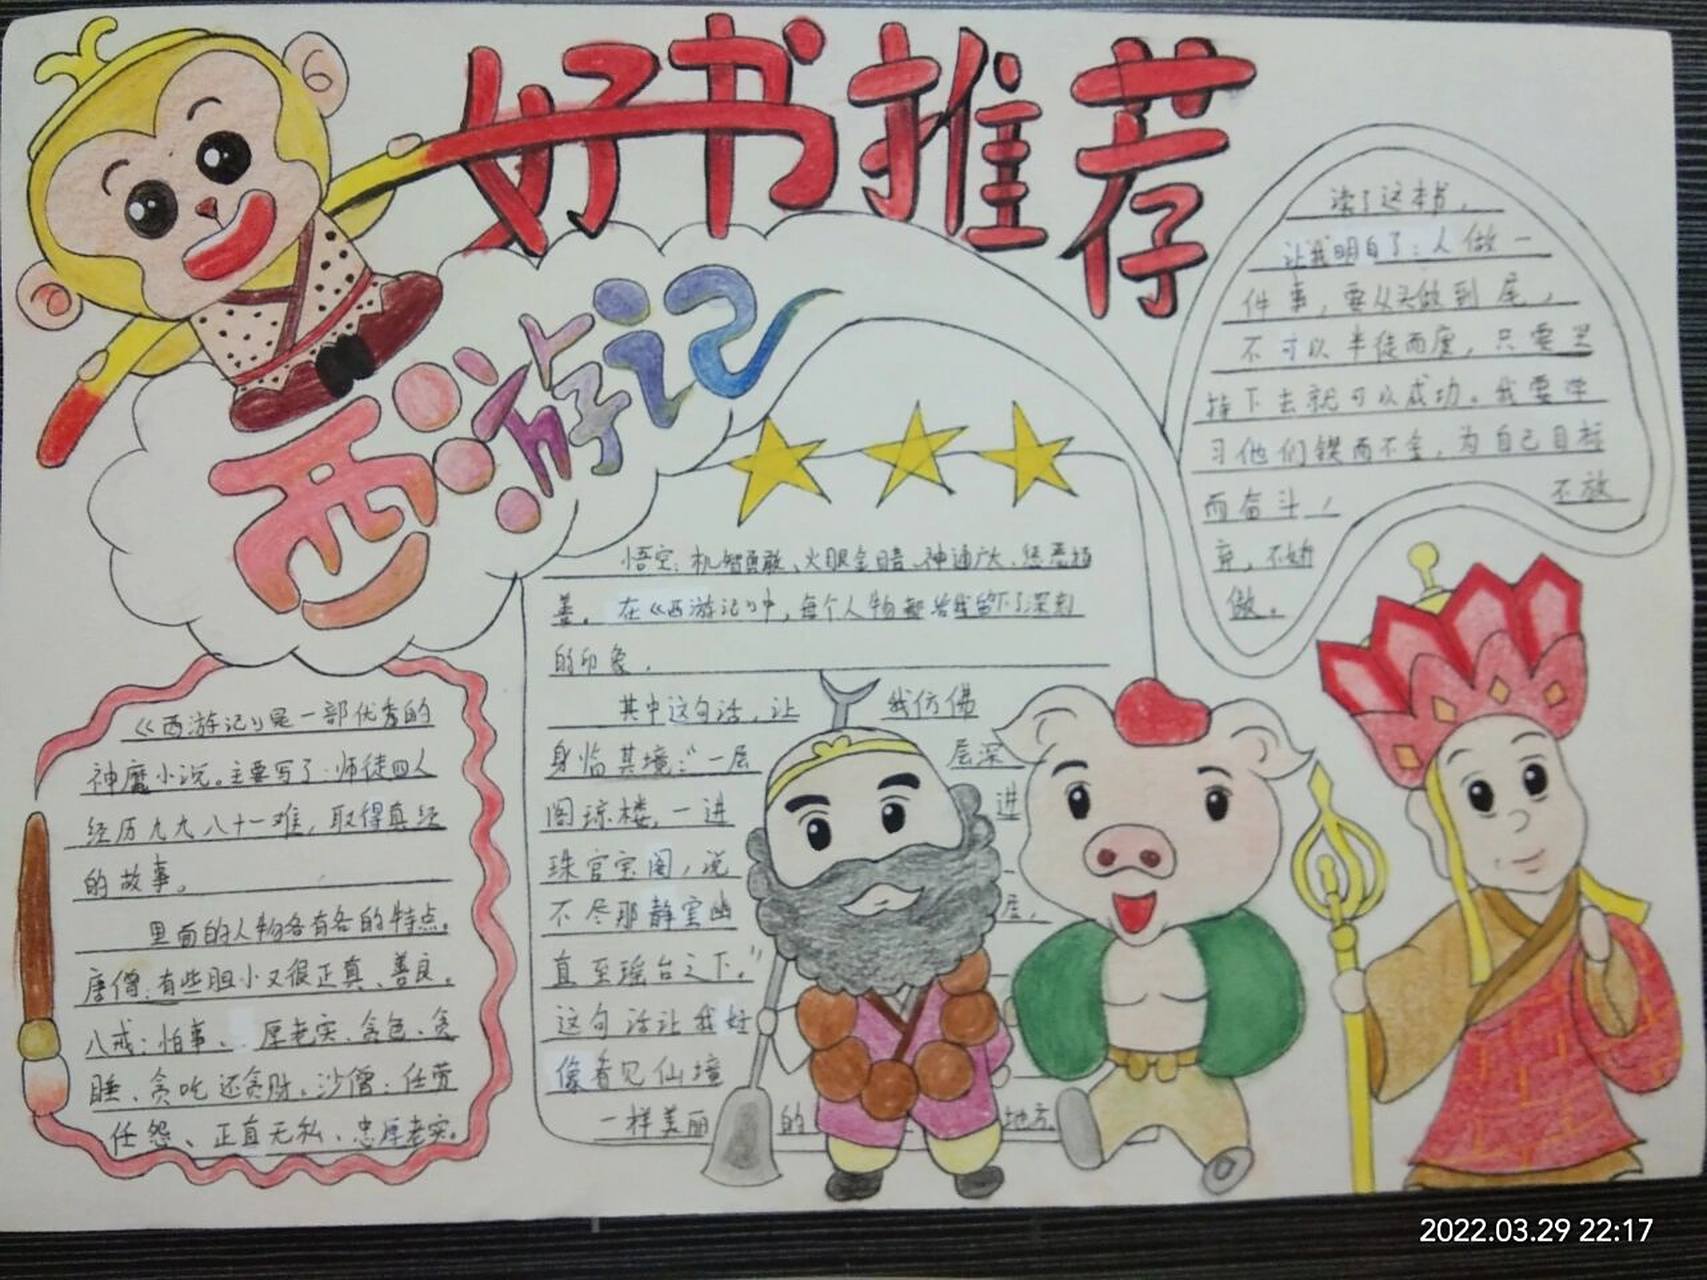 好书推荐
西游记
《西游记》是一部优秀的
神魔小说。主要写了师徒四人
经历九九八十一难，取得真经
的故事。
里面的人物各有各的特点。
唐僧：有些胆小又很正真、善良。
八戒：怕事、厚老实、贪色、贪
睡、贪吃还贪财。沙僧：任劳
任怨、正直无私、忠厚老实。
悟空：机智勇敢、火眼金睛、神通广大、惩恶扬
善。在《西游记》中，每个人物都给我留下了深刻
的印象。
其中这句话，让我仿佛
身临其境："一层层深
阁琼楼，一进进
珠宫宝阁，说
不尽那静室幽居，
直至瑶台之下。"
这句话让我好
像看见仙境
一样美丽的地方
读了这本书，
让我明白了：人做一
件事，要从头做到尾，
不可以半徒而废，只要坚
持下去就可以成功。我要学
习他们锲而不舍，为自己目标
而奋斗，不放
弃，不娇
做。
2022.03.29 22:17